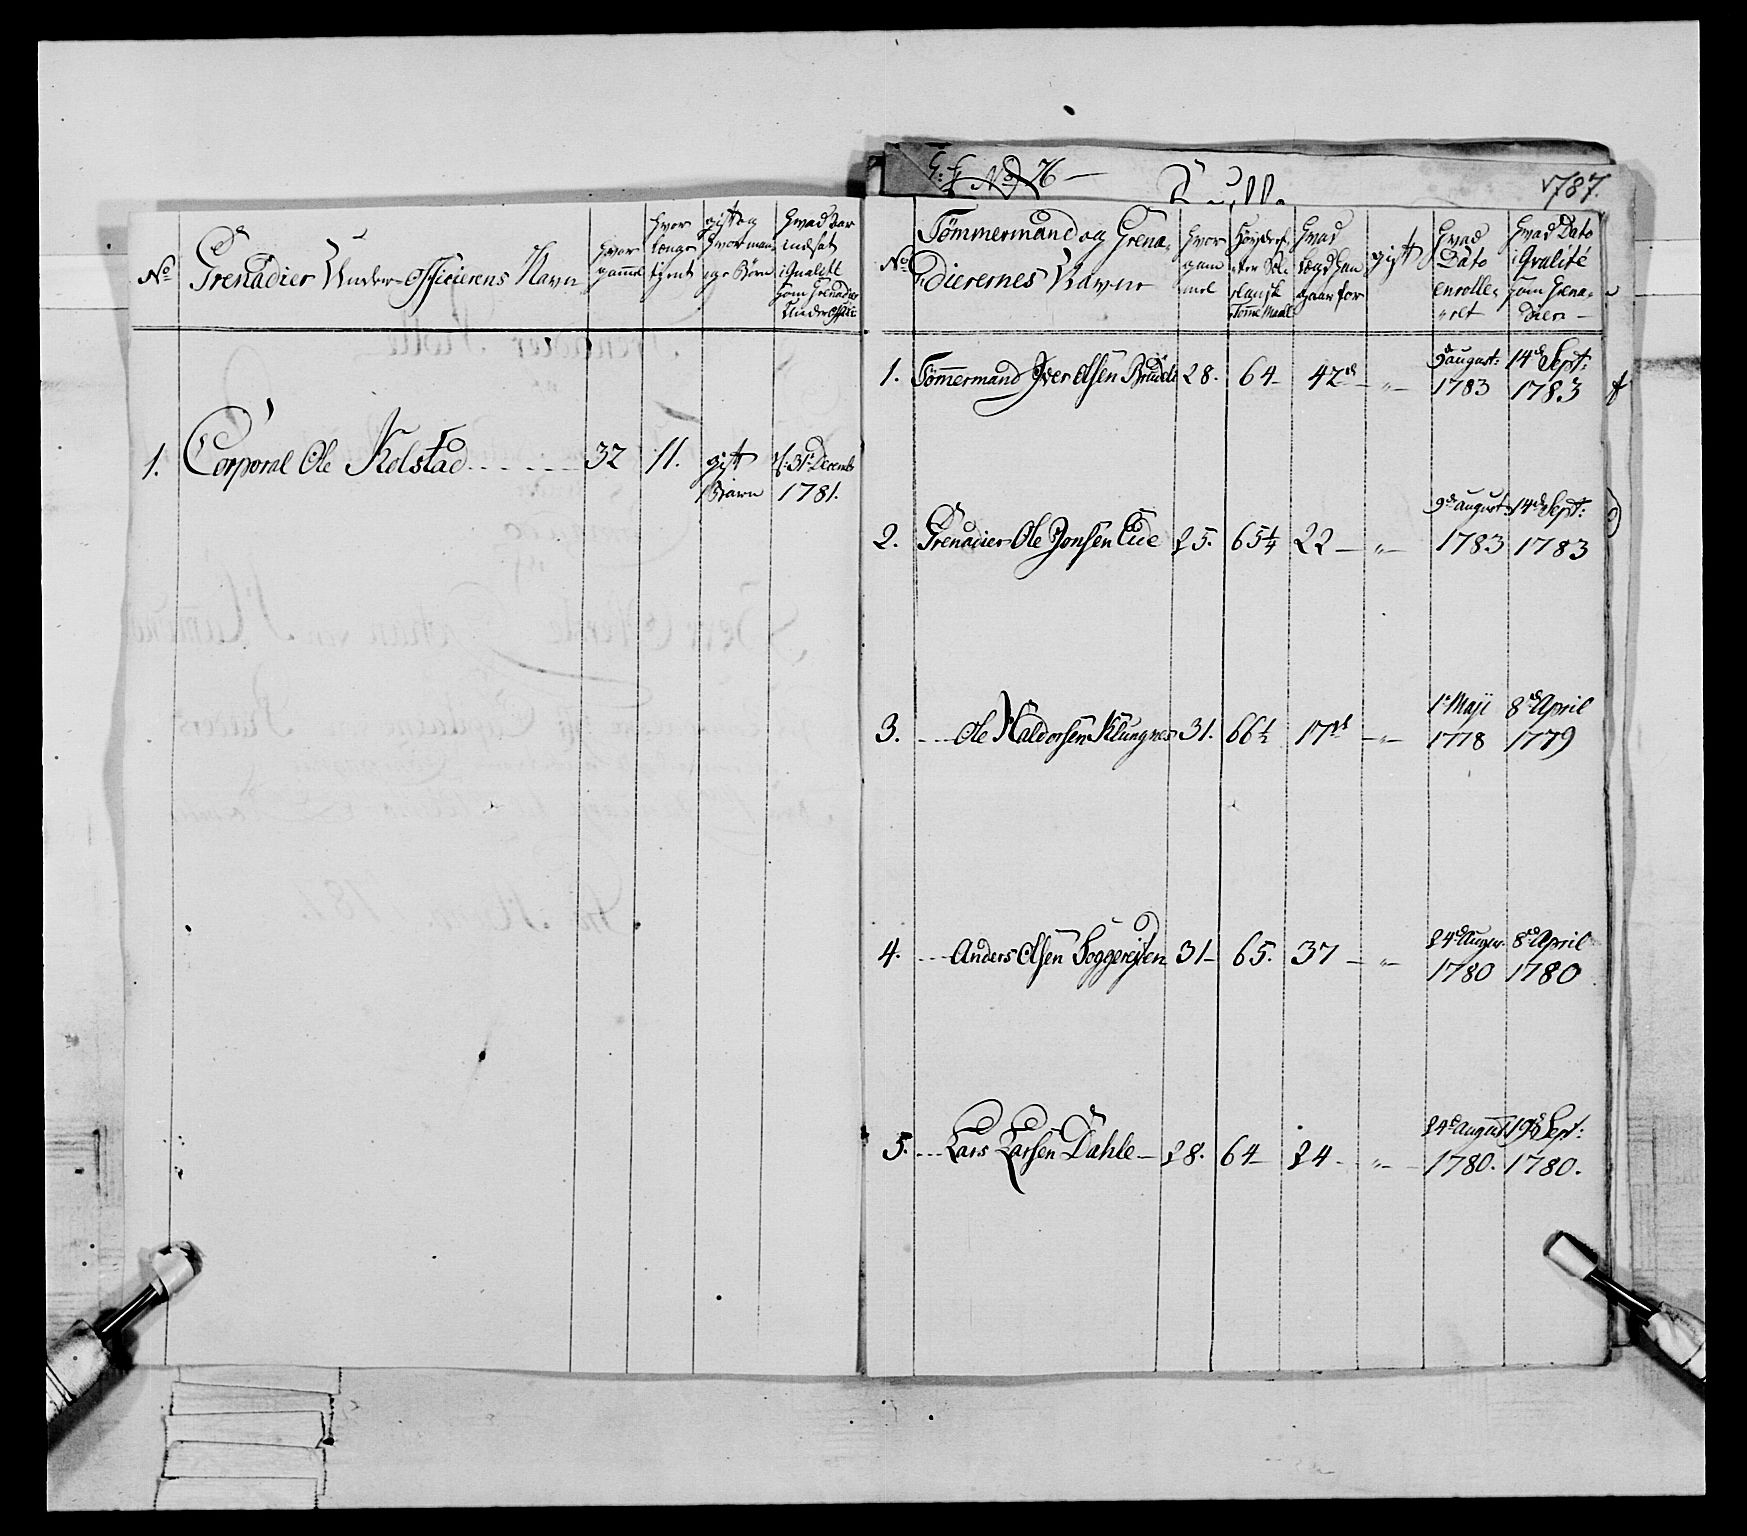 No
Grenadier Under-Officierens Navn
hvor
gammel
hvor
længe
tient
gift og
hvor man-
ge Børn
hvad Dato
indsat
i Qualité
som Grenadier
Under Officier
1. Corporal Ole Kolstad 32 11. gift
1 Barn
d: 31te Decemb
1781.
G: f No 76
1787.
No
Tömmermand og Grena-
dierernes Navne
hvor
gam
mel
Høyde ef-
ter Sel-
landsk
Tomme Maal
hvad
Lægd han
gaar for
gift
hvad
Dato
enrolle-
ret
hvad Dato
i Qvalité
som Grena-
dier
1. Tömmermand Iver Olsen 28. 64 42de „
9de august:
1783
14de Sept:
1783
2. Grenadier Ole Jonsen Eide 25. 65¼ 22 „
9de august
1783
14de Sept:
1783
3. Ole Haldorsen Klungnes 31. 66½ 17de „
1te Maji
1778
8de April
1779
4. Anders Olsen 31 65. 37 „
24de
1780
8de April
1780
5. Lars Larsen Dahle 28. 64 24 „
24de august
1780.
19de Sept:
1780.